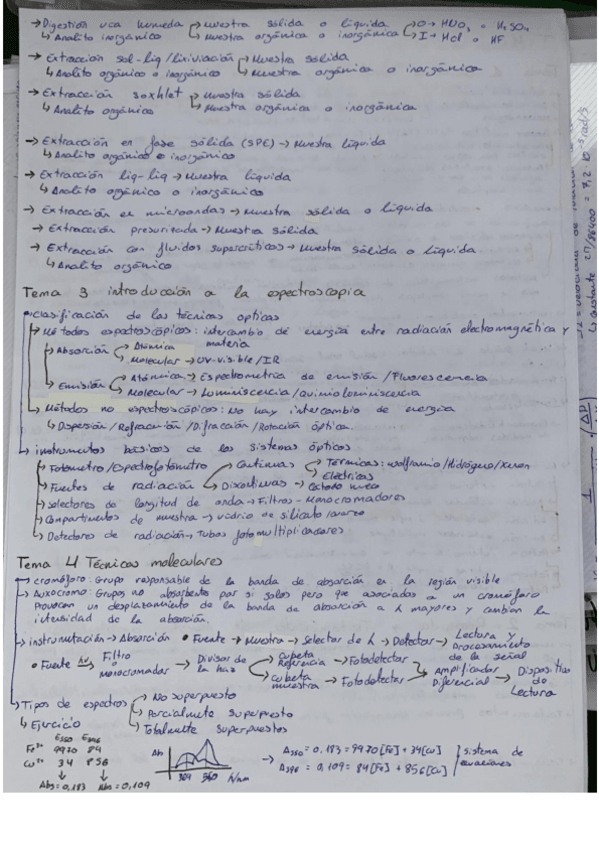 → Digestión vía húmeda → Muestra sólida o líquida
↳ Analito inorgánico ↳ Muestra orgánica o inorgánica < O → HNO₃ o H₂SO₄
I → HCl o HF
→ Extracción sol-liq / lixiviación → Muestra sólida
↳ Analito orgánico o inorgánico ↳ Muestra orgánica o inorgánica
→ Extracción soxhlet → Muestra sólida
↳ Analito orgánico ↳ Muestra orgánica o inorgánica
→ Extracción en fase sólida (SPE) → Muestra líquida
↳ Analito orgánico o inorgánico
→ Extracción liq-liq → Muestra líquida
↳ Analito orgánico o inorgánico
→ Extracción en microondas → Muestra sólida o líquida
→ Extracción presurizada → Muestra sólida
→ Extracción con fluidos supercríticos → Muestra sólida o líquida
↳ Analito orgánico
Tema 3 introducción a la espectroscopia
Clasificación de las técnicas opticas
→ Métodos espectroscópicos: intercambio de energía entre radiación electromagnética y materia
→ Absorción < Atómica
Molecular → UV-visible / IR
→ Emisión < Atómica → Espectrometria de emisión / Fluorescencia
Molecular → Luminiscencia / Quimioluminiscencia
→ Métodos no espectroscópicos: No hay intercambio de energia
↳ Dispersión / Refracción / Difracción / Rotación óptica.
→ instrumentos básicos de los sistemas ópticos
→ Fotometro / Espectrofotómetro
→ Fuentes de radiación < Continuas < Térmicas: wolframio / Hidrógeno / Xenon
Eléctricas
Discontinuas → Cátodo hueco
→ Selectores de longitud de onda → Filtros - Monocromadores
→ Compartimentos de muestra → vidrio de silicato
→ Detectores de radiación → Tubos fotomultiplicadores
Tema 4 Técnicas moleculares
→ Cromóforo: Grupo responsable de la banda de absorción en la región visible
→ Auxocromo: Grupos no absorbentes por si solos pero que asociados a un cromóforo
provocan un desplazamiento de la banda de absorción a λ mayores y cambian la
intensidad de la absorción.
→ instrumetación → Absorción • Fuente → Muestra → Selector de λ → Detector → Lectura y procesamiento de la señal
• Fuente → Filtro o Monocromador → Divisor de la haz < Cubeta Referencia → Fotodetector
Cubeta muestra → Fotodetector > Amplificador Diferencial → Dispositivo de Lectura
→ Tipos de espectros → No superpuesto
→ Parcialmente superpuesto
↳ Totalmente superpuestos
↳ Ejercicio
E₅₅₀ E₃₉₆
Fe³⁺ 9970 84
Cu²⁺ 34 856
↓ ↓
Abs = 0,183 Abs = 0,109
Abs
λ/nm
→ A₅₅₀ = 0,183 = 9970 [Fe] + 34 [Cu]
A₃₉₆ = 0,109 = 84 [Fe] + 856 [Cu]
} sistema de ecuaciones